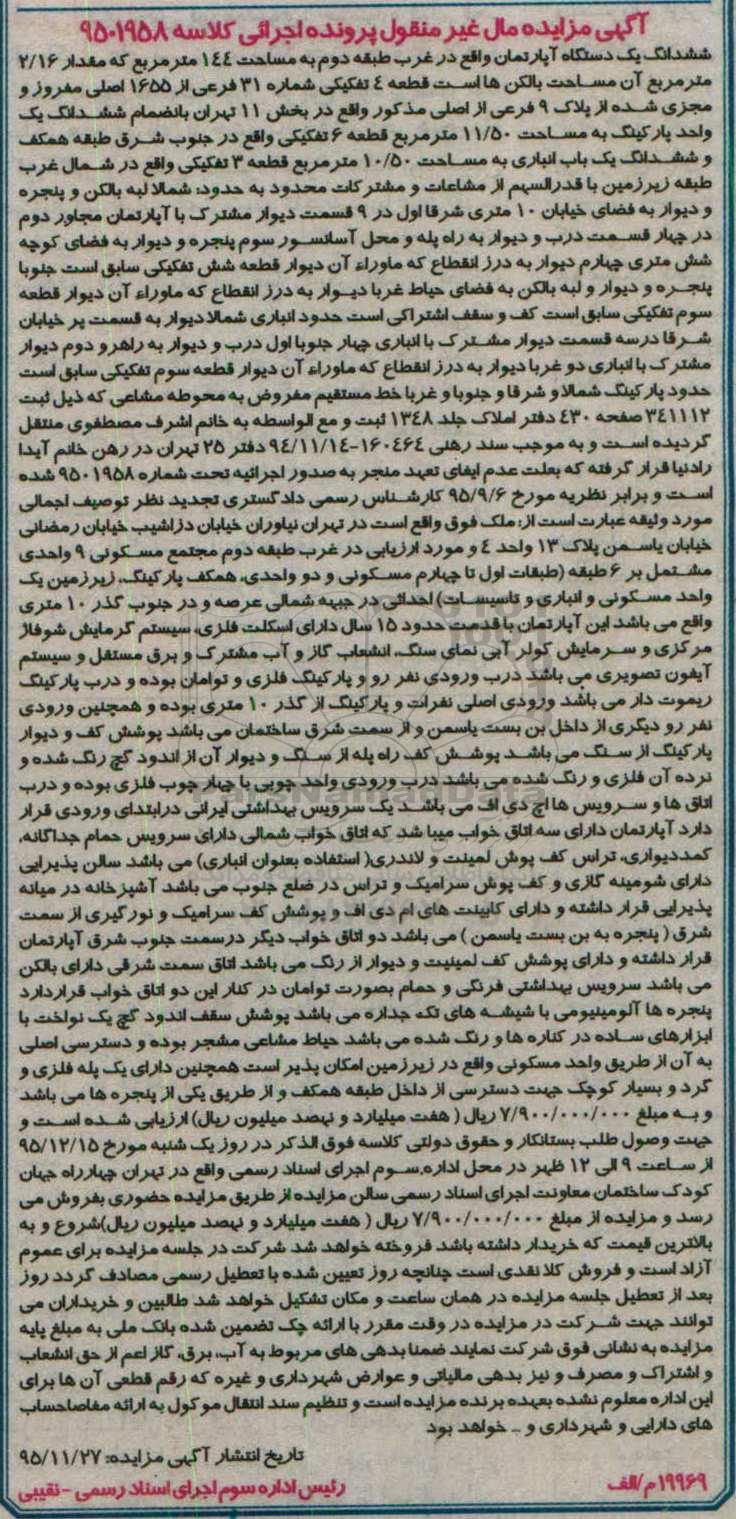 آگهی مزایده مال غیر منقول پرونده اجرائی کلاسه ۹۵۰۱۹۵۸
ششدانگ یک دستگاه آپارتمان واقع در غرب طبقه دوم به مساحت ۱۴۴ مترمربع که مقدار ۲/۱۶
مترمربع آن مساحت بالکن ها است قطعه ٤ تفکیکی شماره ۳۱ فرعی از ۱۶۵۵ اصلی مفروز و
مجزی شده از پلاک ۹ فرعی از اصلی مذکور واقع در بخش ۱۱ تهران بانضمام ششدانگ یک
واحد پارکینگ به مساحت ۱۱/۵۰ مترمربع قطعه ۶ تفکیکی واقع در جنوب شرق طبقه همکف
و ششدانگ یک باب انباری به مساحت ۱۰/۵۰ مترمربع قطعه ۳ تفکیکی واقع در شمال غرب
طبقه زیرزمین با قدرالسهم از مشاعات و مشترکات محدود به حدود: شمالا لبه بالکن و پنجره
و دیوار به فضای خیابان ۱۰ متری شرقا اول در ۹ قسمت دیوار مشترک با آپارتمان مجاور دوم
در چهار قسمت درب و دیوار به راه پله و محل آسانسور سوم پنجره و دیوار به فضای کوچه
شش متری چهارم دیوار به درز انقطاع که ماوراء آن دیوار قطعه شش تفکیکی سابق است جنوبا
پنجره و دیوار و لبه بالکن به فضای حیاط غربا دیوار به درز انقطاع که ماوراء آن دیوار قطعه
سوم تفکیکی سابق است کف و سقف اشتراکی است حدود انباری شمالا دیوار به قسمت پر خیابان
شرقا درسه قسمت دیوار مشترک با انباری چهار جنوبا اول درب و دیوار به راهرو دوم دیوار
مشترک با انباری دو غربا دیوار به درز انقطاع که ماوراء آن دیوار قطعه سوم تفکیکی سابق است
حدود پارکینگ شمالا و شرقا و جنوبا و غربا خط مستقیم مفروض به محوطه مشاعی که ذیل ثبت
۳۴۱۱۱۲ صفحه ۴۳۰ دفتر املاک جلد ۱۳۴۸ ثبت و مع الواسطه به خانم اشرف مصطفوی منتقل
گردیده است و به موجب سند رهنی ۱۶۰۴۶۴-۹۴/۱۱/۱۴ دفتر ۲۵ تهران در رهن خانم آیدا
رادنیا قرار گرفته که بعلت عدم ایفای تعهد منجر به صدور اجرائیه تحت شماره ۹۵۰۱۹۵۸ شده
است و برابر نظریه مورخ ۹۵/۹/۶ کارشناس رسمی دادگستری تجدید نظر توصیف اجمالی
مورد وثیقه عبارت است از: ملک فوق واقع است در تهران نیاوران خیابان دزاشیب خیابان رمضانی
خیابان یاسمن پلاک ۱۳ واحد ٤ و مورد ارزیابی در غرب طبقه دوم مجتمع مسکونی ۹ واحدی
مشتمل بر ۶ طبقه (طبقات اول تا چهارم مسکونی و دو واحدی، همکف پارکینگ، زیرزمین یک
واحد مسکونی و انباری و تاسیسات) احداثی در جبهه شمالی عرصه و در جنوب گذر ۱۰ متری
واقع می باشد این آپارتمان با قدمت حدود ۱۵ سال دارای اسکلت فلزی، سیستم گرمایش شوفاژ
مرکزی و سرمایش کولر آبی نمای سنگ، انشعاب گاز و آب مشترک و برق مستقل و سیستم
آیفون تصویری می باشد درب ورودی نفر رو و پارکینگ فلزی و توامان بوده و درب پارکینگ
ریموت دار می باشد ورودی اصلی نفرات و پارکینگ از گذر ۱۰ متری بوده و همچنین ورودی
نفر رو دیگری از داخل بن بست یاسمن و از سمت شرق ساختمان می باشد پوشش کف و دیوار
پارکینگ از سنگ می باشد پوشش کف راه پله از سنگ و دیوار آن از اندود گچ رنگ شده و
نرده آن فلزی و رنگ شده می باشد درب ورودی واحد چوبی با چهار چوب فلزی بوده و درب
اتاق ها و سرویس ها اچ دی اف می باشد یک سرویس بهداشتی ایرانی درابتدای ورودی قرار
دارد آپارتمان دارای سه اتاق خواب میبا شد که اتاق خواب شمالی دارای سرویس حمام جداگانه،
کمددیواری، تراس کف پوش لمینت و لاندری( استفاده بعنوان انباری) می باشد سالن پذیرایی
دارای شومینه گازی و کف پوش سرامیک و تراس در ضلع جنوب می باشد آشپزخانه در میانه
پذیرایی قرار داشته و دارای کابینت های ام دی اف و پوشش کف سرامیک و نورگیری از سمت
شرق ( پنجره به بن بست یاسمن ) می باشد دو اتاق خواب دیگر درسمت جنوب شرق آپارتمان
قرار داشته و دارای پوشش کف لمینیت و دیوار از رنگ می باشد اتاق سمت شرقی دارای بالکن
می باشد سرویس بهداشتی فرنگی و حمام بصورت توامان در کنار این دو اتاق خواب قراردارد
پنجره ها آلومینیومی با شیشه های تک جداره می باشد پوشش سقف اندود گچ یک نواخت با
ابزارهای ساده در کناره ها و رنگ شده می باشد حیاط مشاعی مشجر بوده و دسترسی اصلی
به آن از طریق واحد مسکونی واقع در زیرزمین امکان پذیر است همچنین دارای یک پله فلزی و
گرد و بسیار کوچک جهت دسترسی از داخل طبقه همکف و از طریق یکی از پنجره ها می باشد
و به مبلغ ۷/۹۰۰/۰۰۰/۰۰۰ ریال ( هفت میلیارد و نهصد میلیون ریال) ارزیابی شده است و
جهت وصول طلب بستانکار و حقوق دولتی کلاسه فوق الذکر در روز یک شنبه مورخ ۹۵/۱۲/۱۵
از ساعت ۹ الی ۱۲ ظهر در محل اداره سوم اجرای اسناد رسمی واقع در تهران چهارراه جهان
کودک ساختمان معاونت اجرای اسناد رسمی سالن مزایده از طریق مزایده حضوری بفروش می
رسد و مزایده از مبلغ ۷/۹۰۰/۰۰۰/۰۰۰ ریال ( هفت میلیارد و نهصد میلیون ریال)شروع و به
بالاترین قیمت که خریدار داشته باشد فروخته خواهد شد شرکت در جلسه مزایده برای عموم
آزاد است و فروش کلا نقدی است چنانچه روز تعیین شده با تعطیل رسمی مصادف گردد روز
بعد از تعطیل جلسه مزایده در همان ساعت و مکان تشکیل خواهد شد طالبین و خریداران می
توانند جهت شرکت در مزایده در وقت مقرر با ارائه چک تضمین شده بانک ملی به مبلغ پایه
مزایده به نشانی فوق شرکت نمایند ضمنا بدهی های مربوط به آب، برق، گاز اعم از حق انشعاب
و اشتراک و مصرف و نیز بدهی مالیاتی و عوارض شهرداری و غیره که رقم قطعی آن ها برای
این اداره معلوم نشده بعهده برنده مزایده است و تنظیم سند انتقال موکول به ارائه مفاصاحساب
های دارایی و شهرداری و ... خواهد بود
تاریخ انتشار آگهی مزایده: ۹۵/۱۱/۲۷
۱۹۹۶۹م/الف
رئیس اداره سوم اجرای اسناد رسمی - نقیبی